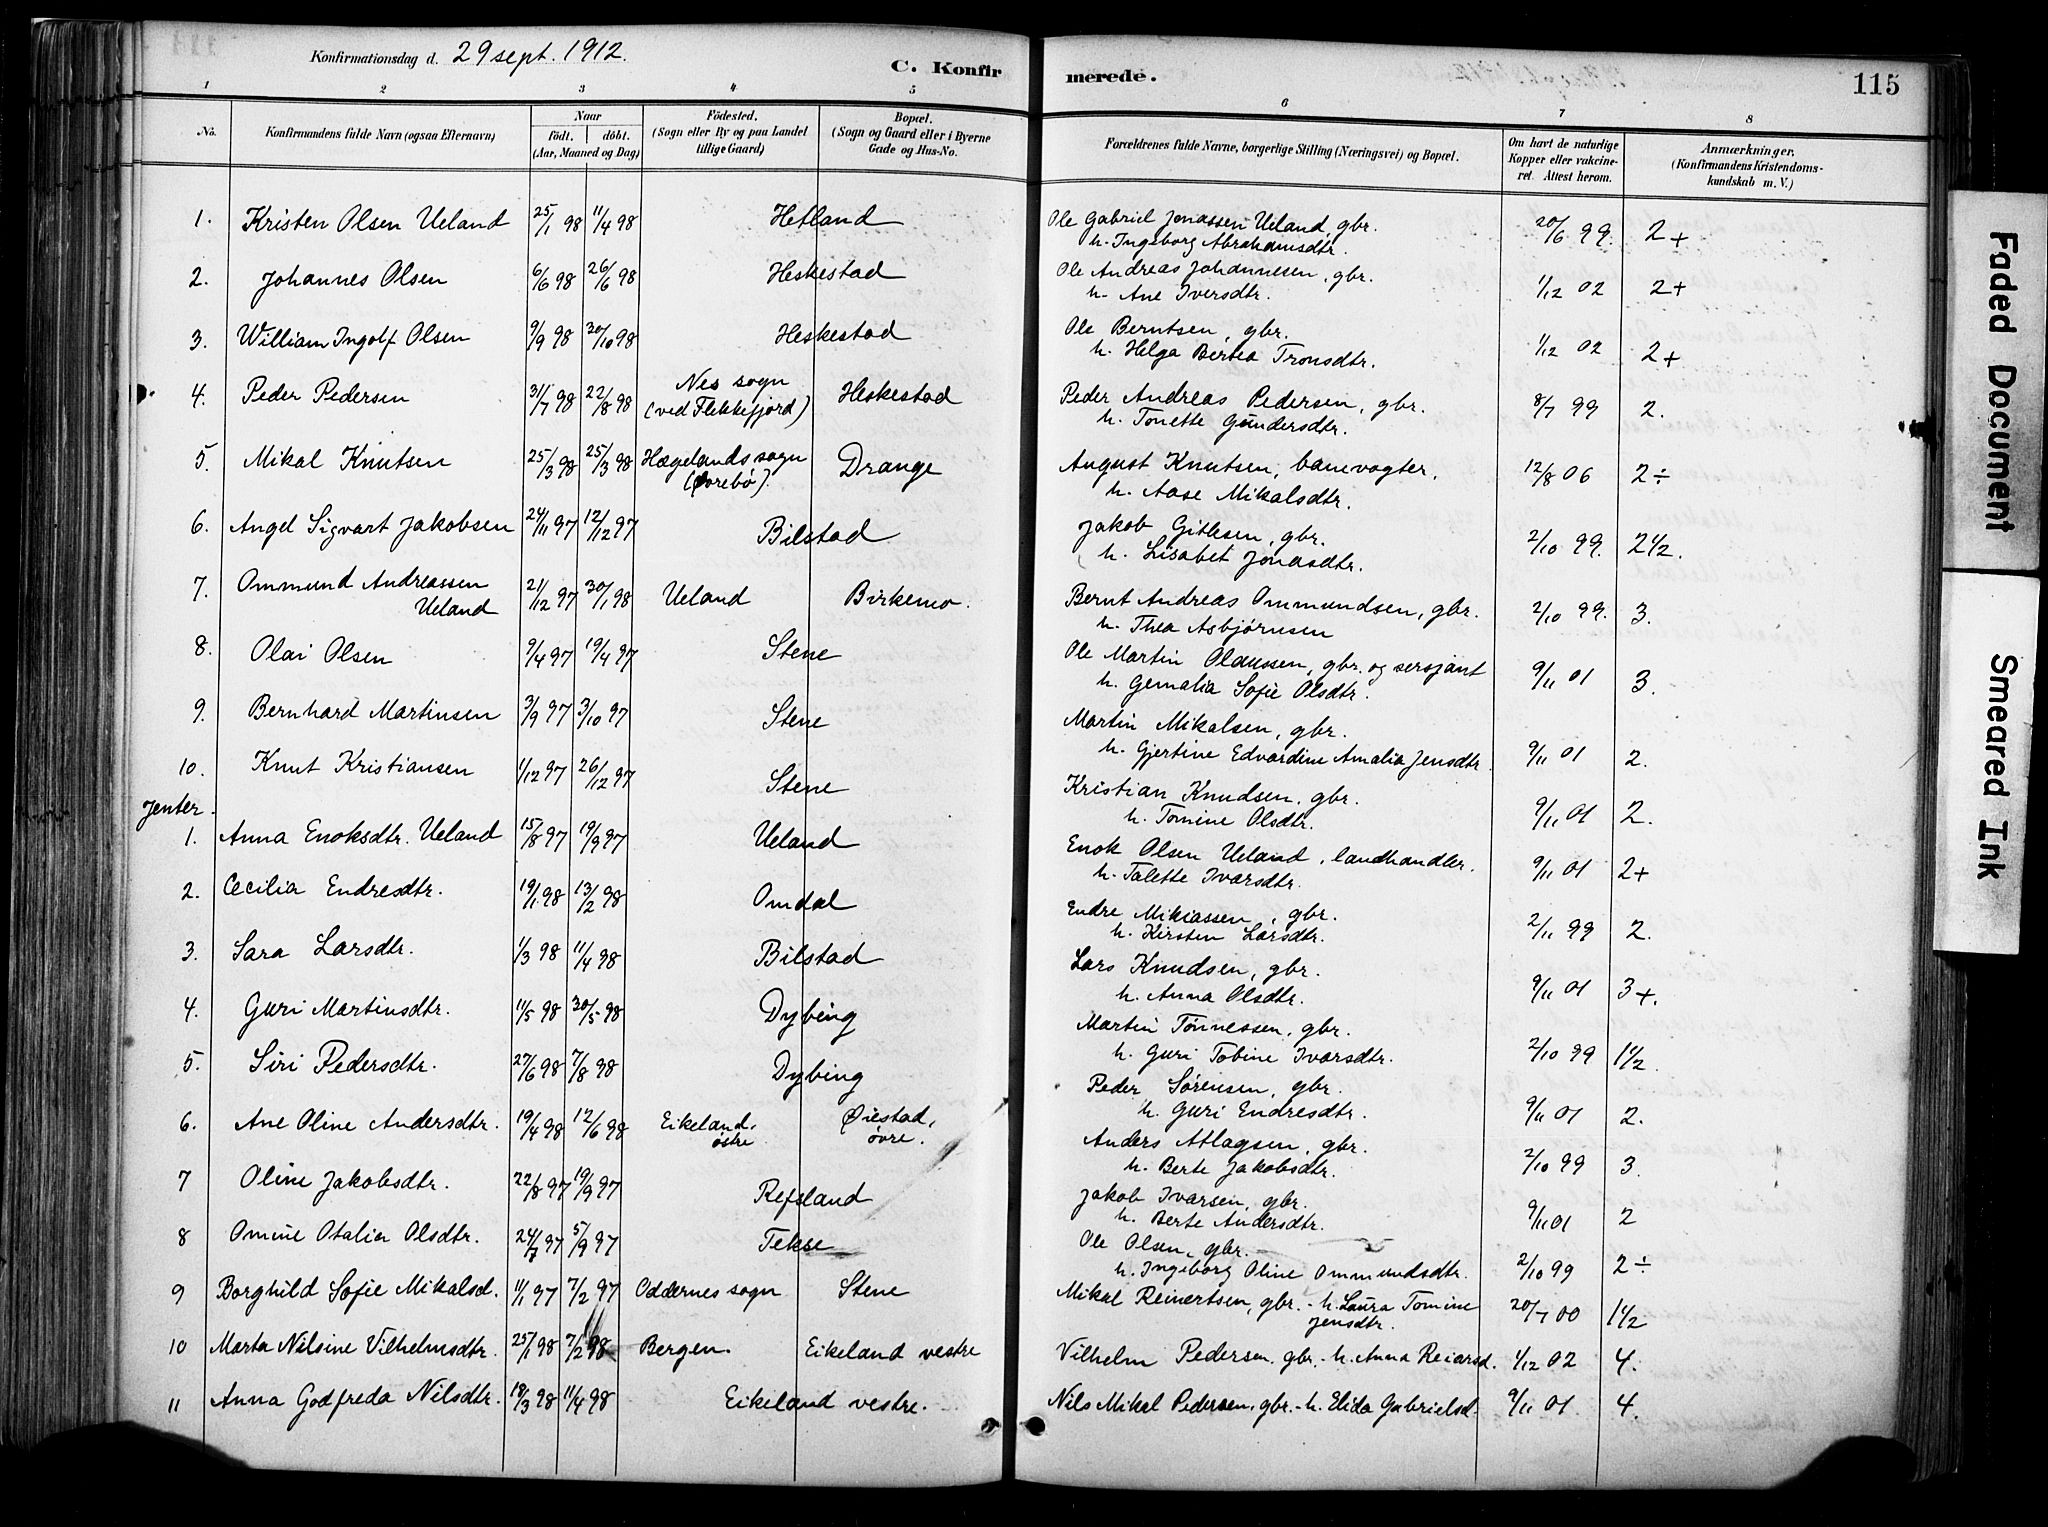 Konfirmationsdag d. 29 sept. 1912.
C. Konfirmerede.
115
1 2 3 4 5 6 7 8
No.
Konfirmandens fulde Navn (ogsaa Efternavn)
Naar
födt. döbt.
(Aar, Maaned og Dag)
Födested.
(Sogn eller By og paa Landet
tillige Gaard)
Bopæl.
(Sogn og Gaard eller i Byerne
Gade og Hus-No.
Forældrenes fulde Navne, borgerlige Stilling (Næringsvei) og Bopæl.
Om havt de naturlige
Kopper eller vakcine-
ret. Attest herom.
Anmærkninger.
(Konfirmandens Kristendoms-
kundskab m. V.)
1. Kristen Olsen Ueland 25/1 98 11/4 98 Hetland Ole Gabriel Jonassen Ueland, gbr. 20/6 99. 2+
h. Ingeborg Abrahamsdtr.
2. Johannes Olsen 6/6 98 26/6 98 Heskestad Ole Andreas Johannesen, gbr. 1/12 02 2+
h. Ane Iversdtr.
3. William Ingolf Olsen 9/9 98 30/10 98 Heskestad Ole Berntsen, gbr. 1/12 02 2+
h. Helga Bertea Tronsdtr.
4. Peder Pedersen 31/7 98 22/8 98 Nes sogn Heskestad Peder Andreas Pedersen, gbr. 8/7 99 2.
(ved Flekkefjord) h. Tonette Gundersdtr.
5. Mikal Knutsen 25/3 98 25/3 98 Hægelands sogn Drange August Knutsen, banevogter, 12/8 06 2÷
(Øvrebø). h. Aase Mikalsdtr.
6. Angel Sigvart Jakobsen 24/11 97 12/12 97 Bilstad Jakob Gitlesen, gbr. 2/10 99. 2½.
h. Lisabet Jonasdtr.
7. Ommund Andreassen 21/12 97 30/1 98 Ueland Birkemo. Bernt Andreas Ommundsen, gbr. 2/10 99. 3.
Ueland h. Thea Asbjørnsen
8. Olai Olsen 9/4 97 19/4 97 Stene Ole Martin Olaussen, gbr. og sersjant 9/11 01 3.
h. Gemalia Sofie Olsdtr.
9. Bernhard Martinsen 3/9 97 3/10 97 Stene Martin Mikalsen, gbr. 9/11 01 2.
h. Gjertine Edvardine Amalia Jensdtr.
10. Knut Kristiansen 1/12 97 26/12 97 Stene Kristian Knudsen, gbr. 9/11 01 2.
h. Tomine Olsdtr.
Jenter.
1. Anna Enoksdtr. Ueland 15/8 97 19/9 97 Ueland Enok Olsen Ueland, landhandler. 9/11 01 2+
h. Talette Ivarsdtr.
2. Cecilia Endresdtr. 19/1 98 13/2 98 Omdal Endre Mikiassen, gbr. 2/11 99 2.
h. Kirsten Larsdtr.
3. Sara Larsdtr. 1/3 98 11/4 98 Bilstad Lars Knudsen, gbr. 9/11 01 3+.
h. Anna Olsdtr.
4. Guri Martinsdtr. 11/5 98 30/5 98 Dybing Martin Tønnessen, gbr. 2/10 99 1½.
h. Guri Tobine Ivarsdtr.
5. Siri Pedersdtr. 27/6 98 7/8 98 Dybing Peder Sørensen, gbr. 9/11 01 2.
h. Guri Endresdtr.
6. Ane Oline Andersdtr. 19/4 98 12/6 98 Eikeland, Øiestad, Anders Atlagsen, gbr. 2/10 99 3.
østre øvre. h. Berte Jakobsdtr.
7 Oline Jakobsdtr. 22/8 97 19/9 97 Refsland Jakob Ivarsen, gbr. 9/11 01 2
h. Berte Andersdtr.
8 Omine Otalia Olsdtr. 24/7 97 5/9 97 Tekse Ole Olsen, gbr. 2/10 99 2÷
h. Ingeborg Oline Ommundsdtr.
9 Borghild Sofie Mikalsd. 11/1 97 7/2 97 Oddernes sogn Stene Mikal Reinertsen, gbr. - h. Laura Tomine 20/7 00 1½
Jensdtr.
10 Marta Nilsine Vilhelmsdtr. 25/1 98 7/2 98 Bergen. Eikeland vestre Vilhelm Pedersen, gbr. - h. Anna Reiarsd. 1/12 02 4.
11 Anna Godfreda Nilsdtr. 18/3 98 11/4 98 Eikeland vestre. Nils Mikal Pedersen, gbr. - h. Elida Gabrielsd. 9/11 01. 4.
Faded Document
Smeared Ink